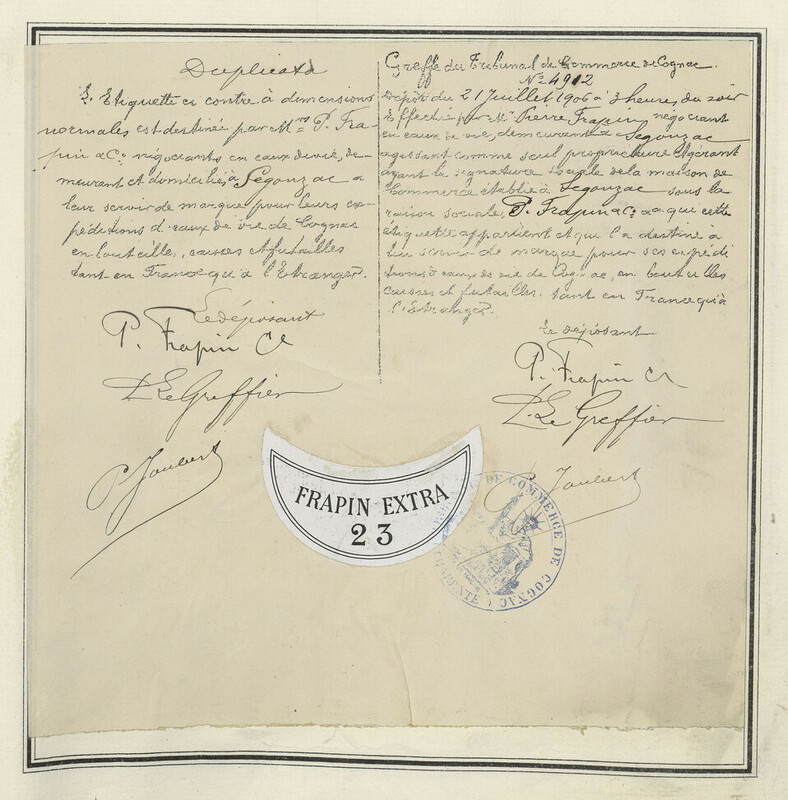 Duplicata
L'Etiquette ci contre à dimensions
normales est destinée par Mrs P. Fra-
pin & Cie négociants en eaux de vie, de-
meurant et domiciliés à Segonzac a
leur servir de marque pour leurs ex-
péditions d'eaux de vie de Cognac
en bouteilles, caisses et futailles
tant en France qu'à l'Etranger.
Le déposant
P. Frapin Ce
P. Le Greffier
P. Joubert
Greffe du Tribunal de Commerce de Cognac.
No 4912
Dépôt du 21 Juillet 1906 à 3 heures du soir
Effectué par Mr Pierre Frapin, négociant
en eaux de vie, demeurant à Segonzac
agissant comme seul propriétaire et gérant
ayant la signature sociale de la maison de
Commerce établie à Segonzac sous la
raison sociale, P. Frapin & Ce a qui cette
etiquette appartient et qui l'a destine à
lui servir de marque pour ses expédi
tions d'eaux de vie de Cognac, en bouteilles
caisses et futailles. tant en France qu'à
l'étranger.
Le déposant
P. Frapin Ce
P. Le Greffier
P. Joubert
FRAPIN EXTRA
23
DE COMMERCE DE COGNAC
CHARENTE